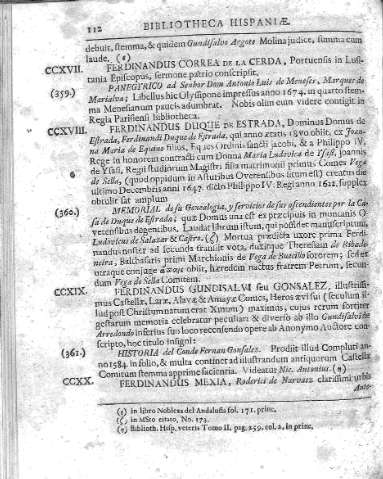 112 BIBLIOTHECA HISPANIÆ
debuit, stemma, & quidem Gundisalvo Argote Molina judice, summa cum
laude. (e)
CCXVII. FERDINANDUS CORREA DE LA CERDA, Portuensis in Lusi-
tania Episcopus, sermone patrio conscripsit,
(359.) PANEGIRICO ad Senhor Dom Antonio Luis de Meneses, Marquez de
Marialva; Libellus hic Ulyssipone impressus anno 1674. in quarto stem-
ma Menesianum paucis adumbrat. Nobis olim eum videre contigit in
Regia Parisiensi bibliotheca.
CCXVIII. FERDINANDUS DUQUE DE ESTRADA, Dominus Domus de
Estrada, Ferdinandi Duque de Estrada, qui anno ætatis obiit, ex Joan-
na Maria de filius, Eques Ordinis sancti Jacobi, & a Philippo IV.
Rege in honorem contracti cum Donna Maria Ludovica de Ysasi, Joannis
de Ysasi, Regii studiorum Magistri filia matrimonii primus Comes Vega
de Sella, (quod oppidum in Asturibus Ovetensibus situm est) creatus die
ultimo Decembris anni 1647. dicto Philippo IV. Regi anno 1622. supplex
obtulit sat amplum
(360.) MEMORIAL de su Genealogia, y servicios de sus ascendientes por la Ca-
sa de Duque de Estrada; quæ Domus una est ex præcipuis in montanis O-
vetensibus degentibus. Laudat librum istum, qui possidet manuscriptum,
Ludovicus de Salazar & Castro. (ζ) Mortua prædicta uxore prima Ferdi-
nandus noster ad secunda transiit vota, duxitque Theresiam de Ribade-
neira, Balthasaris primi Marchionis de Vega de Boecillo sororem; sed ex
utraque conjuge obiit, hæredem nactus fratrem Petrum, secun-
dum Vega de Sella Comitem.
CCXIX. FERDINANDUS GUNDISALVI seu GONSALEZ, illustrissi-
mus Castellæ, Laræ, Alavæ & Amayæ Comes, Heros ævi sui (seculum il-
lud post Christum natum erat Xnum) maximus, cujus rerum fortiter
gestarum memoria celebratur peculiari & diverso ab illo Gundisalvi de
Arredondo inferius suo loco recensendo opere ab Anonymo Auctore con-
scripto, hoc titulo insigni:
(361.) HISTORIA del Conde Fernan Gonsalez. Prodiit illud Compluti an-
no 1584. in folio, & multa continet ad illustrandum antiquorum Castellæ
Comitum stemma apprime facientia. Videatur Nic. Antonius. (η)
CCXX. FERDINANDUS MEXIA, Roderici de Narvaez clarissimi urbis
Ante-
(e) in libro Nobleza del Andalusia fol. 171. princ.
(ζ) in MSto citato, No. 173.
(η) Biblioth. Hisp. veteris Tomo II. pag. 259. col. 2. in princ.